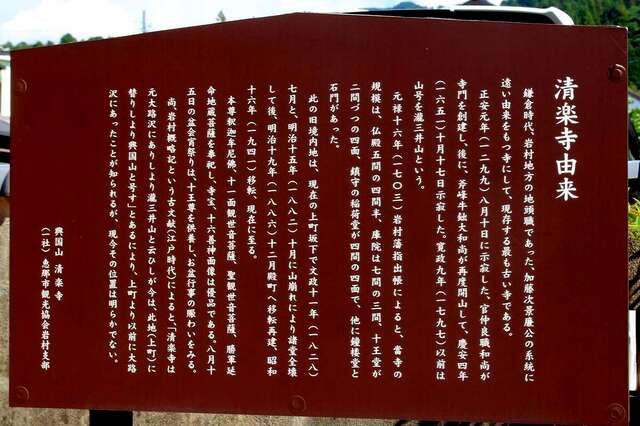 清楽寺由来
鎌倉時代、岩村地方の地頭職であった加藤次景廉公の系統に
遠い由来をもつ寺にして、現存する最も古い寺である。
正安元年（一二九九）八月十日に示寂した、官仲良職和尚が
寺門を創建し、後に、斧庵牛鈯大和尚が再度開山して、慶安四年
（一六五一）十月十七日示寂した。寛政九年（一七九七）以前は
山号を瀧三井山という。
元禄十六年（一七〇三）岩村藩指出帳によると、當寺の
規模は、仏殿五間の四間半、庫院は七間の三間、十王堂が
二間づつの四面、鎮守の稲荷堂が四間の四面で、他に鐘楼堂と
石門があった。
此の旧境内地は、現在の上町坂下で文政十一年（一八二八）
七月と、明治十五年（一八八二）十月に山崩れにより諸堂全壊
して後、明治十九年（一八八六）十二月殿町へ移転再建、昭和
十六年（一九四一）移転、現在に至る。
本尊釈迦牟尼佛、十一面観世音菩薩、聖観世音菩薩、勝軍延
命地蔵菩薩を奉祀し、寺宝、十六善神画像は優品である。八月十
五日の盆会宵祭りは、十王尊を供養し、お盆行事の賑わいをみる。
尚、岩村概略記という古文献（江戸時代）によると、「清楽寺は
元大路沢にありしより瀧三井山と云ひしが今は、此地（上町）に
替りしより興国山と号す」とあるにより、上町より以前に大路
沢にあったことが知られるが、現今その位置は明らかでない。
興国山 清楽寺
（一社）恵那市観光協会岩村支部